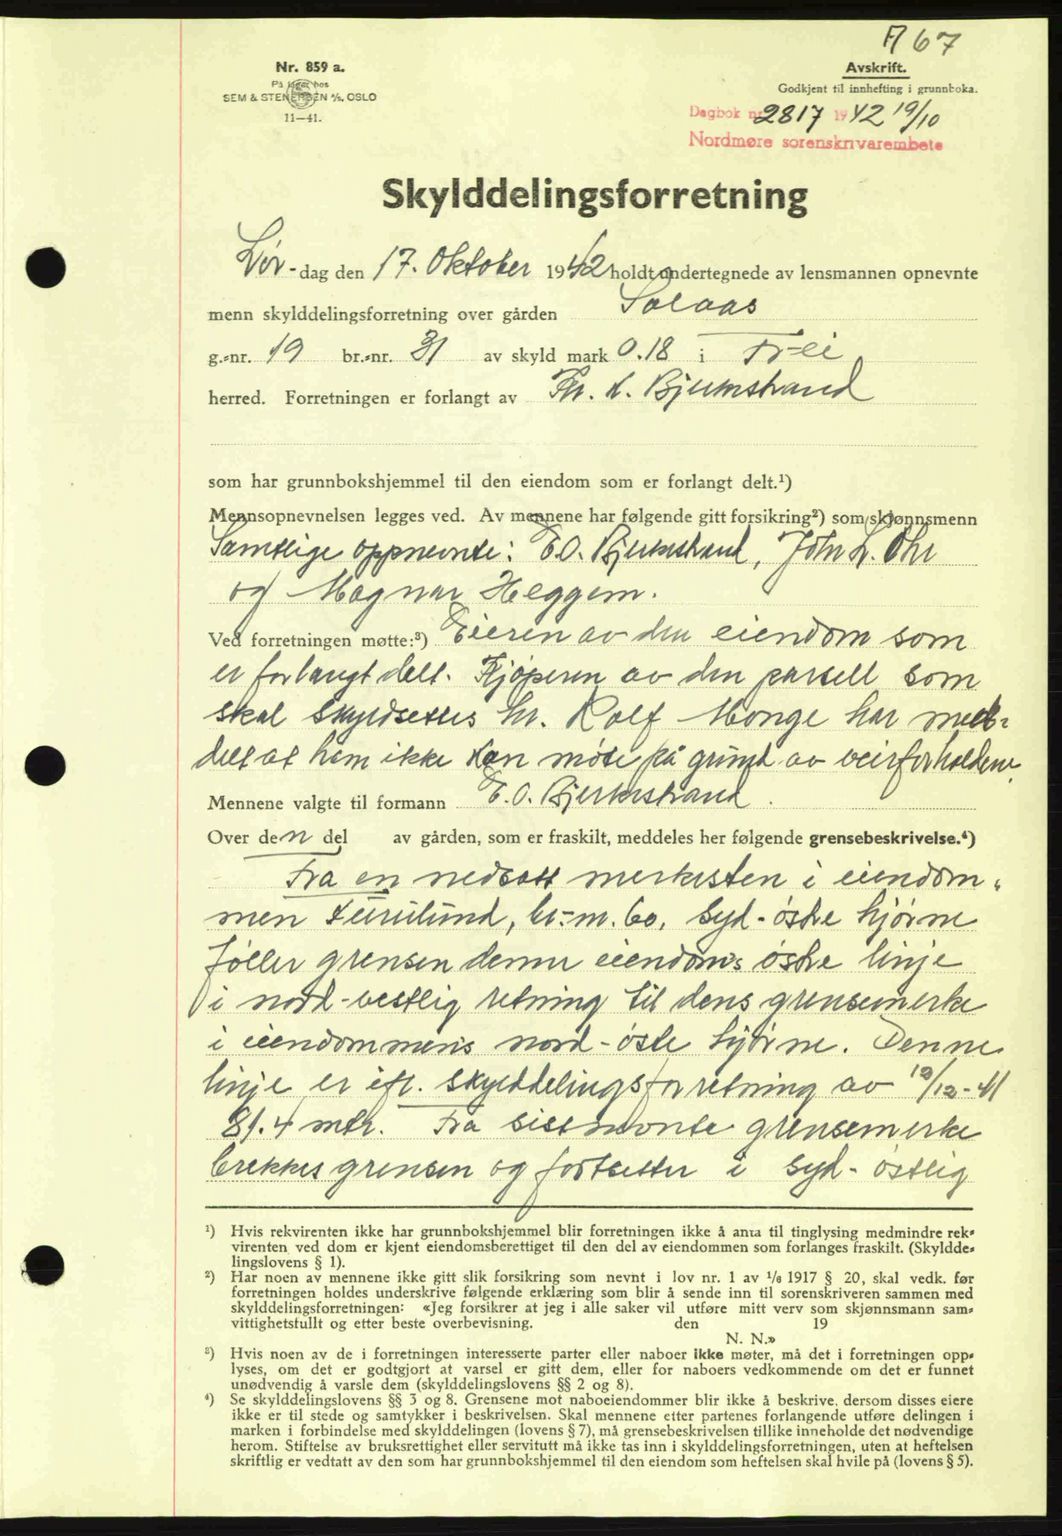 A 67
Nr. 859 a.
På lager hos
SEM & STENERSEN A/S, OSLO
11—41.
Avskrift.
Godkjent til innhefting i grunnboka.
Dagbok nr. 2817 1942 19/10
Nordmøre sorenskrivarembete
Skylddelingsforretning
Lør-dag den 17. Oktober 1942 holdt undertegnede av lensmannen opnevnte
menn skylddelingsforretning over gården Solaas
g.-nr. 19 br.-nr. 31 av skyld mark 0.18 i Frei
herred. Forretningen er forlangt av Kr. A. Bjerkestrand
som har grunnbokshjemmel til den eiendom som er forlangt delt.¹)
Mennsopnevnelsen legges ved. Av mennene har følgende gitt forsikring²) som skjønnsmenn
Samtlige oppnevnte: E.O. Bjerkestrand, John L. Ohr
og Magnar Heggem.
Ved forretningen møtte:³) Eieren av den eiendom som
er forlangt delt. Kjøperen av den parsell som
skal skyldsettes hr. Rolf Monge har med-
delt at ham ikke kan møte på grund av veirforholdene.
Mennene valgte til formann E.O. Bjerkestrand.
Over den del av gården, som er fraskilt, meddeles her følgende grensebeskrivelse.⁴)
Fra en nedsatt merkesten i eiendom-
men Furulund, br.-nr. 60, syd-østre hjørne
føller grensen denne eiendoms østre linje
i nord-vestlig retning til dens grensemerke
i eiendommens nord-øste hjørne. Denne
linje er eft. skylddelingsforretning av 12/12-41
81.4 mtr. Fra sistnevnte grensemerke
brekkes grensen og fortsetter i syd-østlig
¹) Hvis rekvirenten ikke har grunnbokshjemmel blir forretningen ikke å anta til tinglysing medmindre rek-
virenten ved dom er kjent eiendomsberettiget til den del av eiendommen som forlanges fraskilt. (Skyldde-
lingslovens § 1).
²) Har noen av mennene ikke gitt slik forsikring som nevnt i lov nr. 1 av 1/6 1917 § 20, skal vedk. før
forretningen holdes underskrive følgende erklæring som blir å sende inn til sorenskriveren sammen med
skylddelingsforretningen: «Jeg forsikrer at jeg i alle saker vil utføre mitt verv som skjønnsmann sam-
vittighetsfullt og etter beste overbevisning. den 19
N. N.»
³) Hvis noen av de i forretningen interesserte parter eller naboer ikke møter, må det i forretningen opp-
lyses, om det er godtgjort at varsel er gitt dem, eller for naboers vedkommende om det er funnet
unødvendig å varsle dem (skylddelingslovens §§ 2 og 8).
⁴) Se skylddelingslovens §§ 3 og 8. Grensene mot naboeiendommer blir ikke å beskrive, dersom disses eiere
ikke er til stede og samtykker i beskrivelsen. Skal mennene etter partenes forlangende utføre delingen i
marken i forbindelse med skylddelingen (lovens § 7), må grensebeskrivelsen tillike inneholde det nødvendige
herom. Stiftelse av bruksrettighet eller servitutt må ikke tas inn i skylddelingsforretningen, uten at heftelsen
skriftlig er vedtatt av den som har grunnbokshjemmel til den eiendom som heftelsen skal hvile på (lovens § 5).